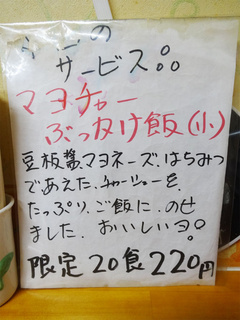 の
サービス
マヨチャー
ぶっかけ飯(小)
豆板醤、マヨネーズ、はちみつ
であえた、チャーシューを、
たっぷり、ご飯に、のせ
ました、おいしいヨ!
限定20食220円